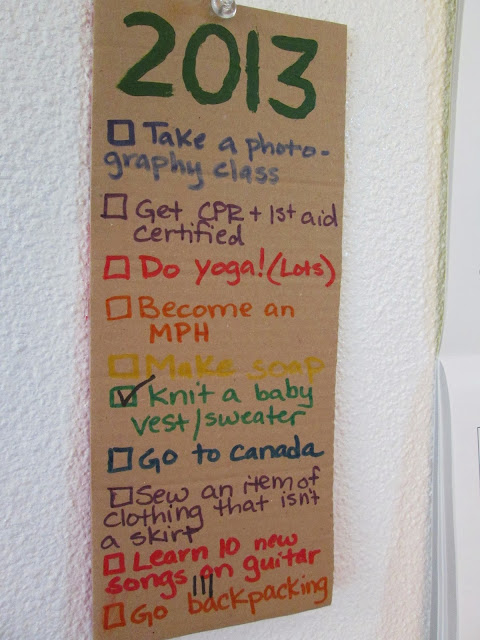 2013
Take a photo-
graphy class
Get CPR + 1st aid
certified
Do yoga! (Lots)
Become an
MPH
Make soap
Knit a baby
vest/sweater
Go to Canada
Sew an item of
clothing that isn't
a skirt
Learn 10 new
songs on guitar
Go backpacking